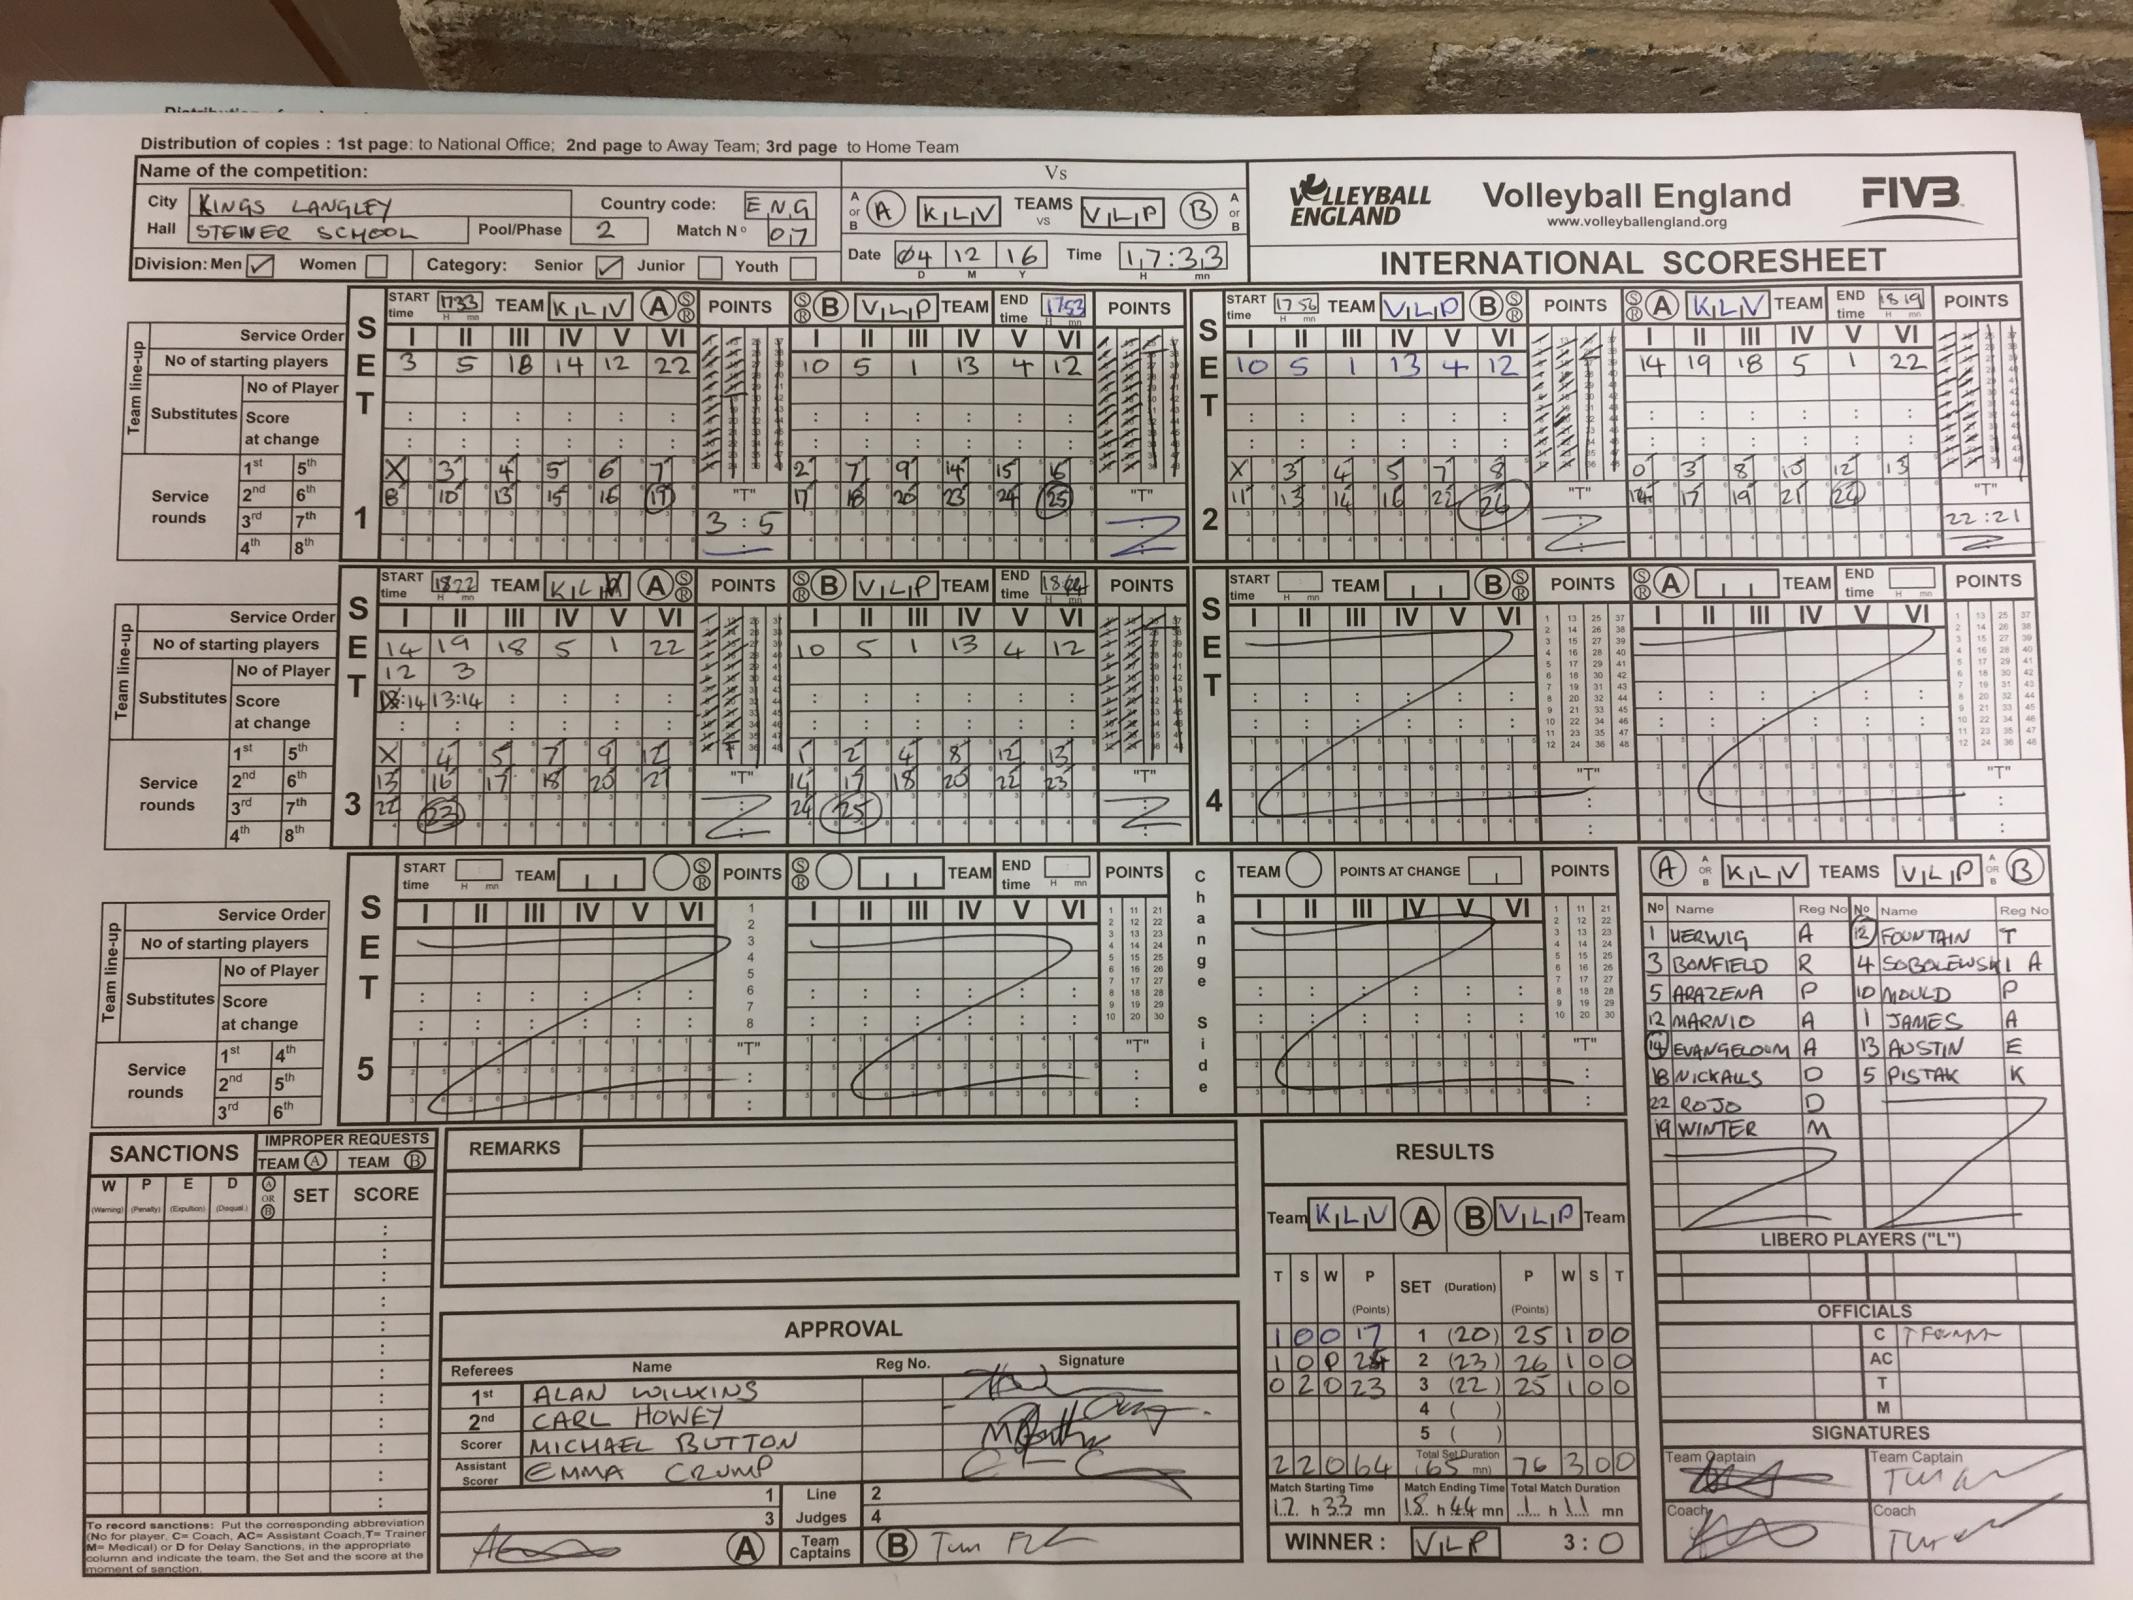 Distribution of copies : 1st page: to National Office; 2nd page to Away Team; 3rd page to Home Team
Name of the competition:
City KINGS LANGLEY Country code: ENG
Hall STEINER SCHOOL Pool/Phase 2 Match Nº 07
Division: Men Women Category: Senior Junior Youth
Vs
A or B A KLV TEAMS VS VLP B A or B
Date 04 12 16 Time 17:33
D M Y H mn
VOLLEYBALL ENGLAND Volleyball England FIVB
www.volleyballengland.org
INTERNATIONAL SCORESHEET
SET 1
START time 1733 TEAM KLV A S R POINTS S R B VLP TEAM END time 1753 POINTS
Team line-up
Service Order I II III IV V VI I II III IV V VI
No of starting players 3 5 18 14 12 22 10 5 1 13 4 12
Substitutes No of Player
Score at change
Service rounds
1st 5th X 3 4 5 6 7 2 7 9 14 15 16
2nd 6th 8 10 13 15 16 17 "T" 17 18 20 23 24 25 "T"
3rd 7th 3:5
4th 8th
SET 2
START time 1756 TEAM VLP B S R POINTS S R A KLV TEAM END time 1819 POINTS
I II III IV V VI I II III IV V VI
10 5 1 13 4 12 14 19 18 5 1 22
X 3 4 5 7 8 0 3 8 10 12 13
11 13 14 16 22 26 "T" 14 17 19 21 24 "T"
22:21
SET 3
START time 1822 TEAM KLV A S R POINTS S R B VLP TEAM END time 1844 POINTS
Team line-up
Service Order I II III IV V VI I II III IV V VI
No of starting players 14 19 18 5 1 22 10 5 1 13 4 12
Substitutes No of Player 12 3
Score at change 13:14
Service rounds
1st 5th X 4 5 7 9 12 1 2 4 8 12 13
2nd 6th 13 16 17 18 20 21 "T" 14 17 18 20 22 23 "T"
3rd 7th 22 23 24 25
4th 8th
SET 4
START time TEAM B S R POINTS S R A TEAM END time POINTS
I II III IV V VI I II III IV V VI
"T" "T"
SET 5
START time TEAM S R POINTS S R TEAM END time POINTS Change Side TEAM POINTS AT CHANGE POINTS
Team line-up
Service Order I II III IV V VI I II III IV V VI I II III IV V VI
No of starting players
Substitutes No of Player
Score at change
Service rounds
1st 4th "T" "T" "T"
2nd 5th
3rd 6th
A A OR B KLV TEAMS VLP A OR B B
Nº Name Reg No Nº Name Reg No
1 HERWIG A 12 FOUNTAIN T
3 BONFIELD R 4 SOBOLEWSKI A
5 ARAZENA P 10 MOULD P
12 MARNIO A 1 JAMES A
14 EVANGELOUM A 13 AUSTIN E
18 NICKALLS D 5 PISTAK K
22 ROJO D
19 WINTER M
LIBERO PLAYERS ("L")
OFFICIALS
C
AC
T
M
SIGNATURES
Team Captain Team Captain
Coach Coach
SANCTIONS IMPROPER REQUESTS
TEAM A TEAM B
W P E D A OR B SET SCORE
(Warning) (Penalty) (Expultion) (Disqual.)
To record sanctions: Put the corresponding abbreviation
(No for player, C= Coach, AC= Assistant Coach,T= Trainer
M= Medical) or D for Delay Sanctions, in the appropriate
column and indicate the team, the Set and the score at the
moment of sanction.
REMARKS
APPROVAL
Referees Name Reg No. Signature
1st ALAN WILKINS
2nd CARL HOWEY
Scorer MICHAEL BUTTON
Assistant Scorer EMMA CRUMP
1 Line 2
3 Judges 4
A Team Captains B
RESULTS
Team KLV A B VLP Team
T S W P SET (Duration) P W S T
(Points) (Points)
1 0 0 17 1 (20) 25 1 0 0
1 0 0 24 2 (23) 26 1 0 0
0 2 0 23 3 (22) 25 1 0 0
4 ( )
5 ( )
2 2 0 64 Total Set Duration (65 mn) 76 3 0 0
Match Starting Time Match Ending Time Total Match Duration
17 h 33 mn 18 h 44 mn 1 h 11 mn
WINNER : VLP 3:0